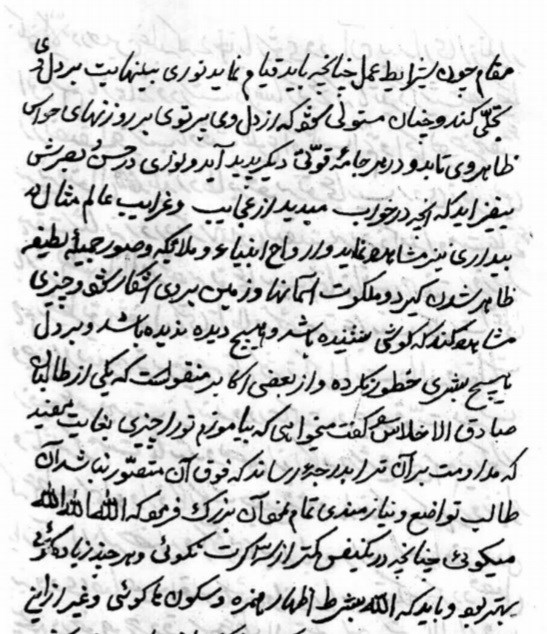 مقام چون بشرایط عمل چنانچه باید قیام نماید نوری بینهایت بر دل وی
تجلی کند و چنان مستولی شود که از دل وی پرتوی بر روزنهای حواس
ظاهر وی تابد و در هر جامهٔ قوتی دیگر پدید آید و نوری در حس بصرش
بیفزاید که آنچه در خواب میدید از عجایب و غرایب عالم مثال در
بیداری نیز مشاهده نماید و ارواح انبیاء و ملائکه و صور جمیلهٔ لطیفه
ظاهر شدن گیرد و ملکوت آسمانها و زمین بر وی آشکار شود و چیزی
مشاهده کند که گوشی نشنیده باشد و هیچ دیده ندیده باشد و بر دل
هیچ بشری خطور نکرده و از بعضی اکابر منقولست که یکی از طالبان
صادق الاخلاص را گفت میخواهی که بیاموزم تو را چیزی بغایت مفید
که مداومت بر آن ترا بدرجهٔ رساند که فوق آن متصور نباشد آن
طالب تواضع و نیازمندی تمام نمود آن بزرگ فرمود که الله الله الله
میگوئی چنانچه در یکنفس کمتر از سه کرت نگوئی و هر چند زیاده گوئی
بهتر بود و باید که الله بشرط اظهار همزه و سکون ها گوئی و غیر از این